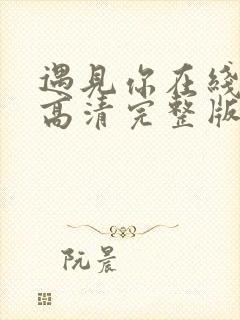 遇見你在綫
高清完整版
阮晨